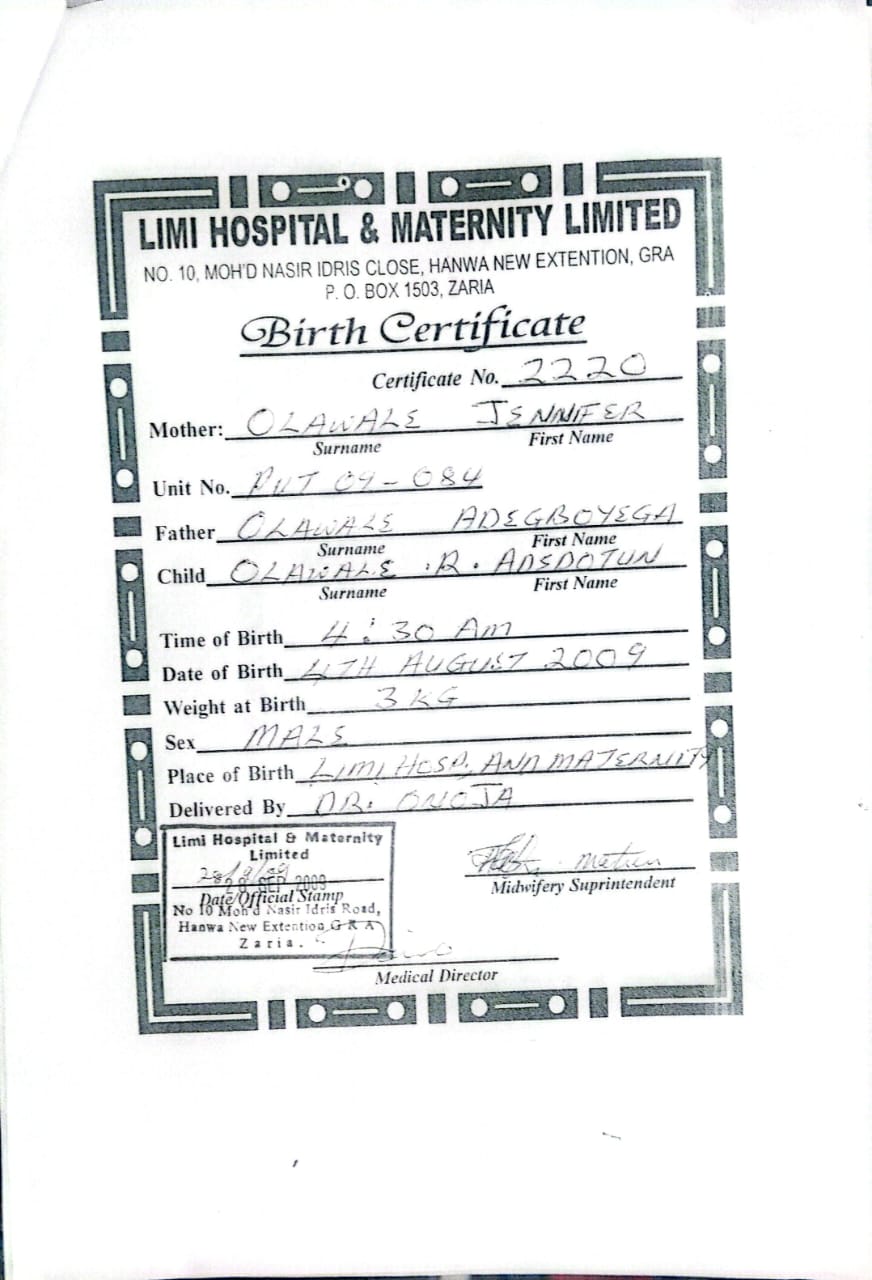 LIMI HOSPITAL & MATERNITY LIMITED
NO. 10, MOH'D NASIR IDRIS CLOSE, HANWA NEW EXTENTION, GRA
P. O. BOX 1503, ZARIA
Birth Certificate
Certificate No. 2220
Mother: OLAWALE JENNIFER
Surname First Name
Unit No. PVT 09-084
Father OLAWALE ADEGBOYEGA
Surname First Name
Child OLAWALE .R. ADEDOTUN
Surname First Name
Time of Birth 4:30 AM
Date of Birth 4TH AUGUST 2009
Weight at Birth 3KG
Sex MALE
Place of Birth LIMI HOSP. AND MATERNITY
Delivered By DR. ONOJA
Limi Hospital & Maternity
Limited
28/9/09
28 SEP 2009
Date/Official Stamp
No 10 Moh'd Nasir Idris Road,
Hanwa New Extention G R A
Zaria.
Midwifery Suprintendent
Medical Director